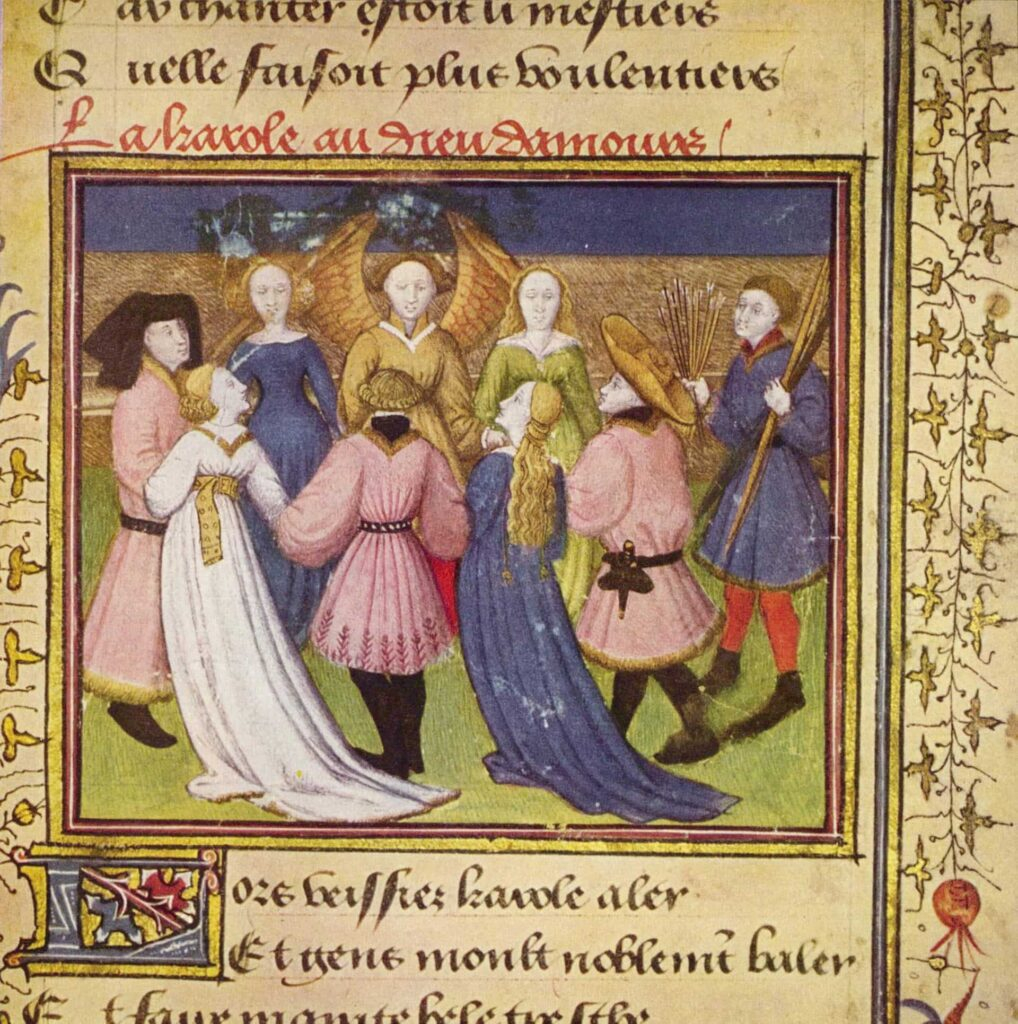 au chanter estoit li mestiers
Q uelle faisoit plus voulentiers
La karole au dieu damours
Lors veissiez karole aler
Et gens moult noblemt baler
E t faire mainte bele tresche